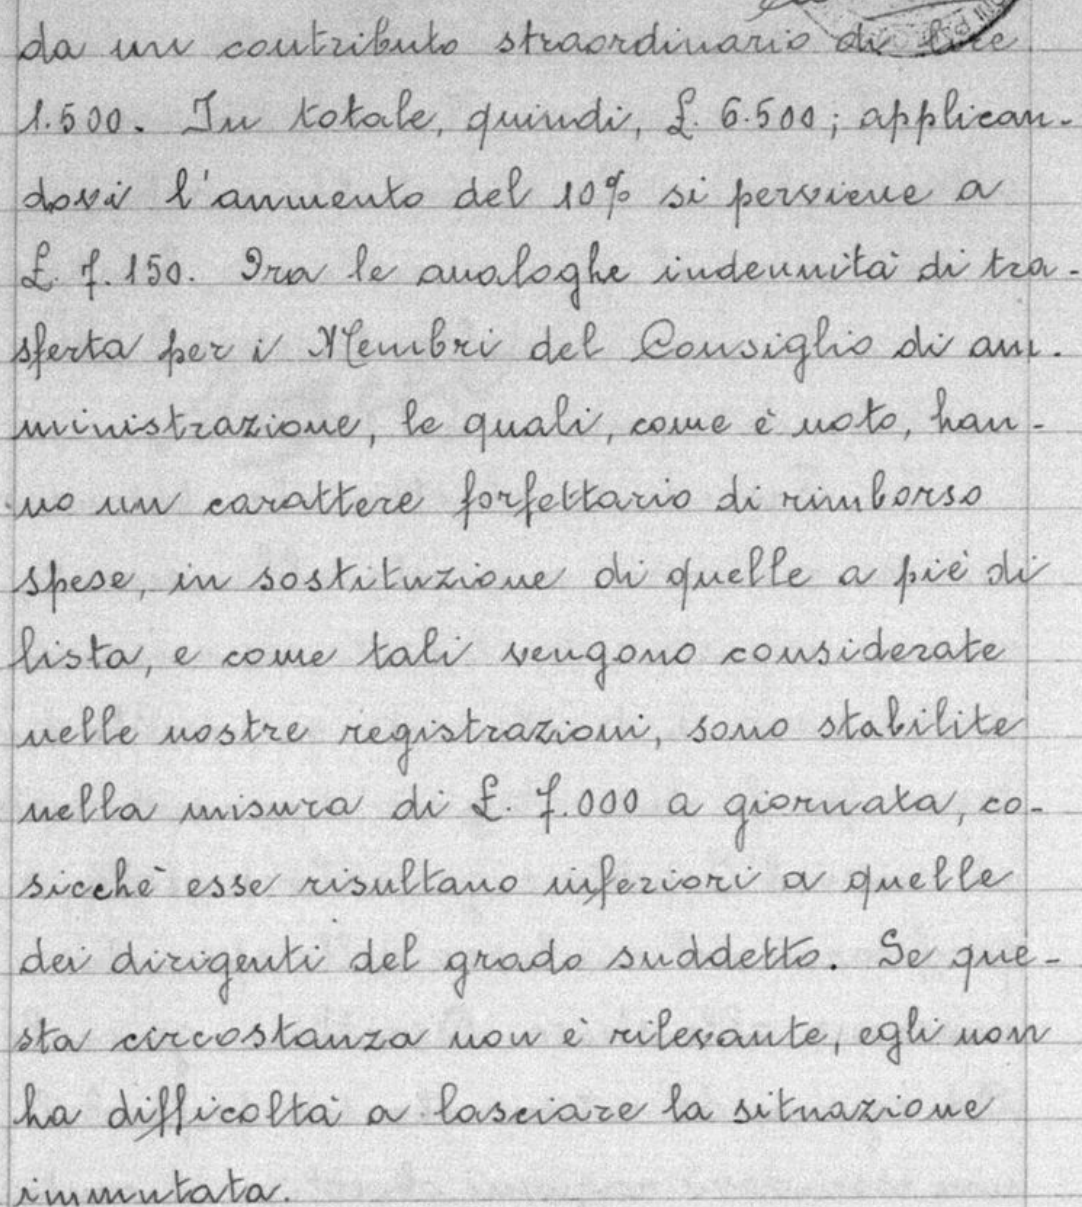 da un contributo straordinario di lire
1.500. In totale, quindi, £. 6.500; applican-
dovi l'aumento del 10% si perviene a
£. 7.150. Ora le analoghe indennità di tra-
sferta per i Membri del Consiglio di am-
ministrazione, le quali, come è noto, han-
no un carattere forfettario di rimborso
spese, in sostituzione di quelle a piè di
lista, e come tali vengono considerate
nelle nostre registrazioni, sono stabilite
nella misura di £. 7.000 a giornata, co-
sicchè esse risultano inferiori a quelle
dei dirigenti del grado suddetto. Se que-
sta circostanza non è rilevante, egli non
ha difficoltà a lasciare la situazione
immutata.